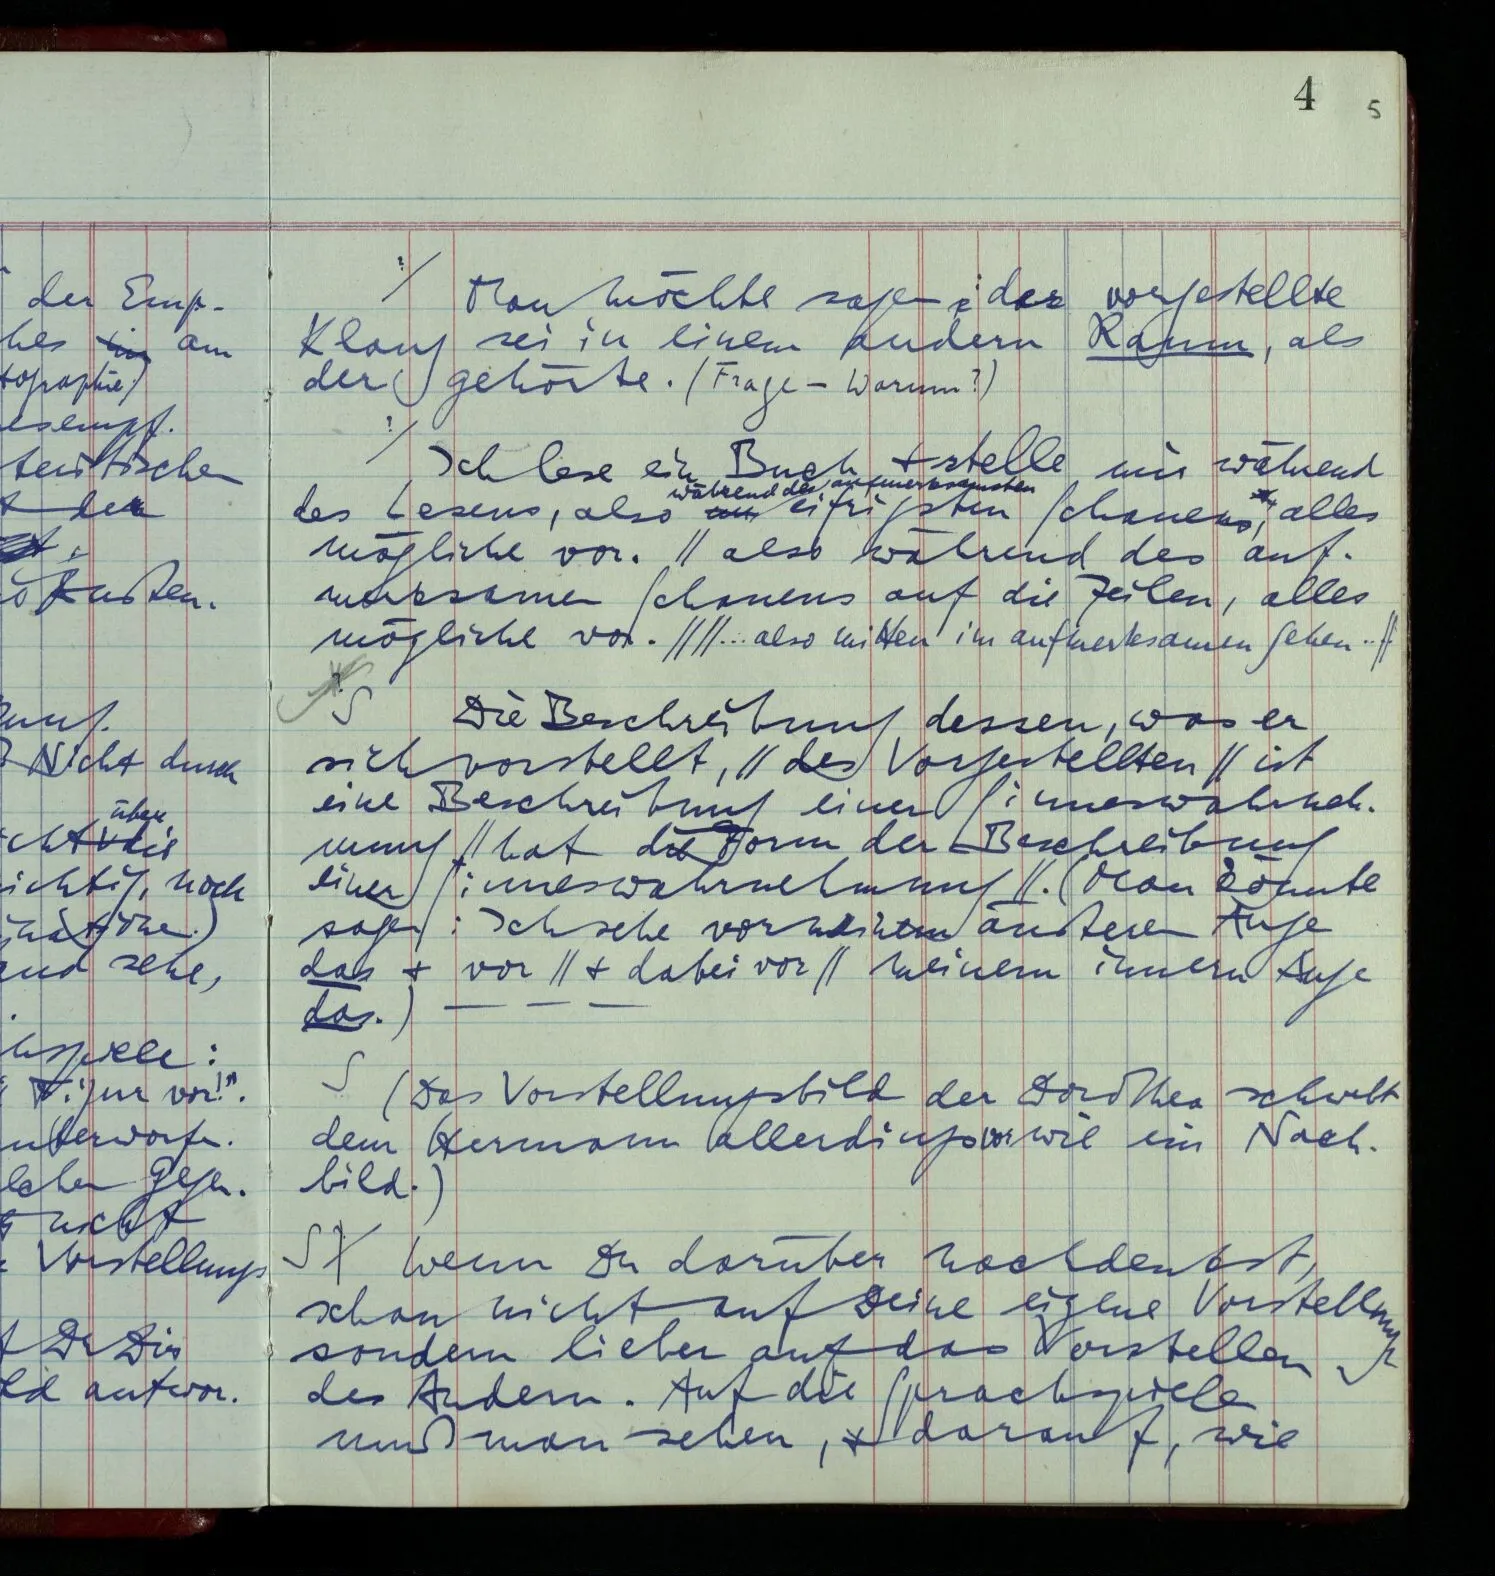 4 5
der Emp-
hes am
tographie)
esempf.
teristischen
t den
Nicht durch
über
cht die
ichtig, noch
und sehe,
hspiele:
Figur vor!".
unterworfen.
lcher Gegen-
nicht
Vorstellungs
Du Dir
ld antwor-
?/ Man möchte sagen: der vorgestellte
Klang sei in einem andern Raum, als
der gehörte. (Frage – Warum?)
?/ Ich lese ein Buch + stelle mir während
während des aufmerksamsten
des Lesens, also eifrigsten Schauens, alles
mögliche vor. // also während des auf-
merksamen Schauens auf die Zeilen, alles
mögliche vor. // //... also mitten im aufmerksamen Sehen .. //
S Die Beschreibung dessen, was er
sich vorstellt, // des Vorgestellten // ist
eine Beschreibung einer Sinneswahrneh-
mung // hat die Form der Beschreibung
einer Sinneswahrnehmung //. (Man könnte
sagen: Ich sehe vor meinem äußeren Auge
das + vor // + dabei vor // meinem innern Auge
das.) — — —
S (Das Vorstellungsbild der Dorothea schwebt
dem Hermann allerdings vor wie ein Nach-
bild.)
S Wenn Du darüber nachdenkst,
schau nicht auf Deine eigene Vorstellung
sondern lieber auf das Vorstellen
des Andern. Auf die Sprachspiele
muß man sehen, + darauf, wie